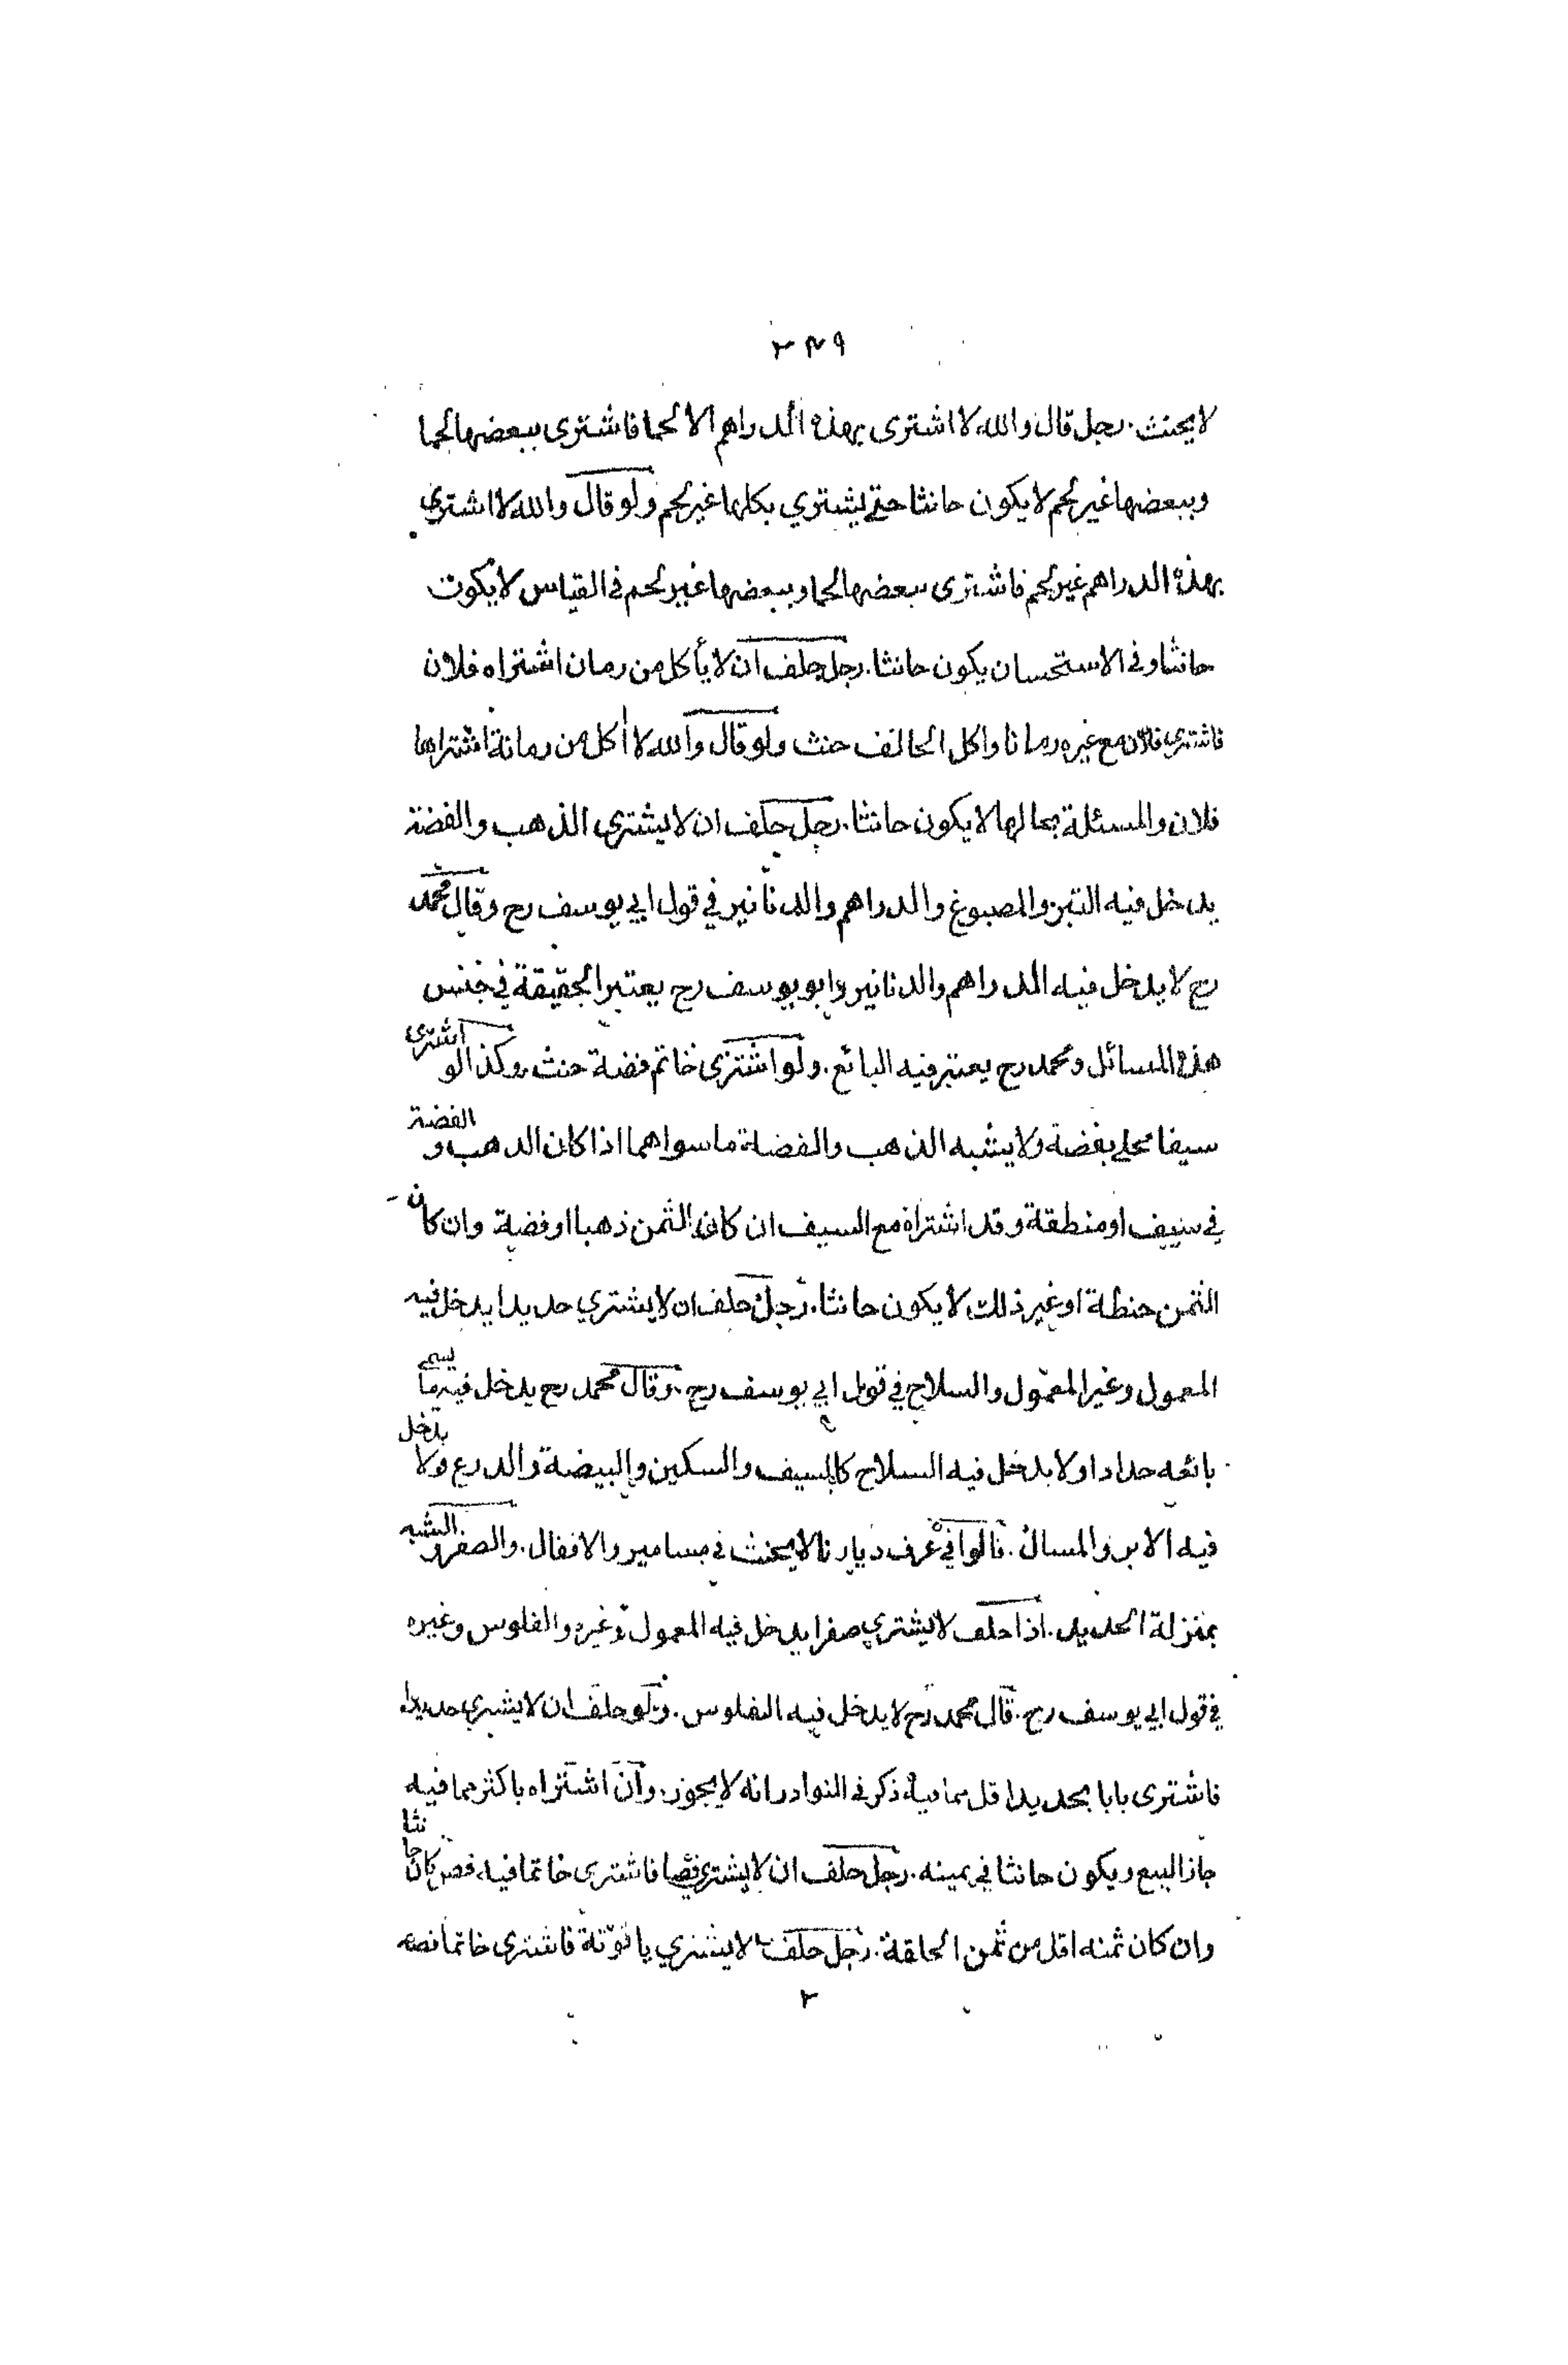 ٣٤٩
لا يحنث. رجل قال والله لا اشترى بهذه الدراهم الا لحما فاشترى ببعضها لحما
وببعضها غير لحم لا يكون حانثا حتى يشتري بكلها غير لحم ولو قال والله لا اشتري
بهذه الدراهم غير لحم فاشترى ببعضها لحما وببعضها غير لحم فى القياس لا يكون
حانثا وفى الاستحسان يكون حانثا. رجل حلف ان لا يأكل من رمان اشتراه فلان
فاشترى فلان مع غيره رمانا واكل الحالف حنث ولو قال والله لا اكل من رمانة اشتراها
فلان والمسئلة بحالها لا يكون حانثا. رجل حلف ان لا يشتري الذهب والفضة
يدخل فيه التبر والمصبوغ والدراهم والدنانير في قول ابي يوسف رح وقال محمد
رح لا يدخل فيه الدراهم والدنانير وابو يوسف رح يعتبر الحقيقة في جنس
هذه المسائل ومحمد رح يعتبر فيه البائع. ولو اشترى خاتم فضة حنث وكذا لو اشترى
سيفا محلى بفضة ولا يشبه الذهب والفضة ما سواهما اذا كان الذهب و الفضة
في سيف او منطقة وقد اشتراه مع السيف ان كان الثمن ذهبا او فضة وان كان
الثمن حنطة او غير ذلك لا يكون حانثا. رجل حلف ان لا يشتري حديدا يدخل فيه
المعمول وغير المعمول والسلاح في قول ابي يوسف رح. وقال محمد رح يدخل فيه ما يسمى
بائعه حدادا ولا يدخل فيه السلاح كالسيف والسكين والبيضة والدرع ولا يدخل
فيه الابر والمسال. قالوا في عرف ديارنا لا يحنث في مسامير والاقفال. والصفر و الشبه
بمنزلة الحديد. اذا حلف لا يشتري صفرا يدخل فيه المعمول وغيره والفلوس وغيره
في قول ابي يوسف رح. قال محمد رح لا يدخل فيه الفلوس. ولو حلف ان لا يشتري حديدا
فاشترى بابا بحديد اقل مما فيه ذكر فى النوادر انه لا يجوز. وان اشتراه باكثر مما فيه
جاز البيع ويكون حانثا في يمينه. رجل حلف ان لا يشتري فصا فاشترى خاتما فيه فص كان حانثا
وان كان ثمنه اقل من ثمن الحلقة. رجل حلف لا يشتري ياقوتة فاشترى خاتما فصه